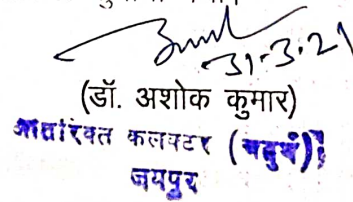 31-3-21
(डॉ. अशोक कुमार)
अतिरिक्त कलक्टर (चतुर्थ)
जयपुर